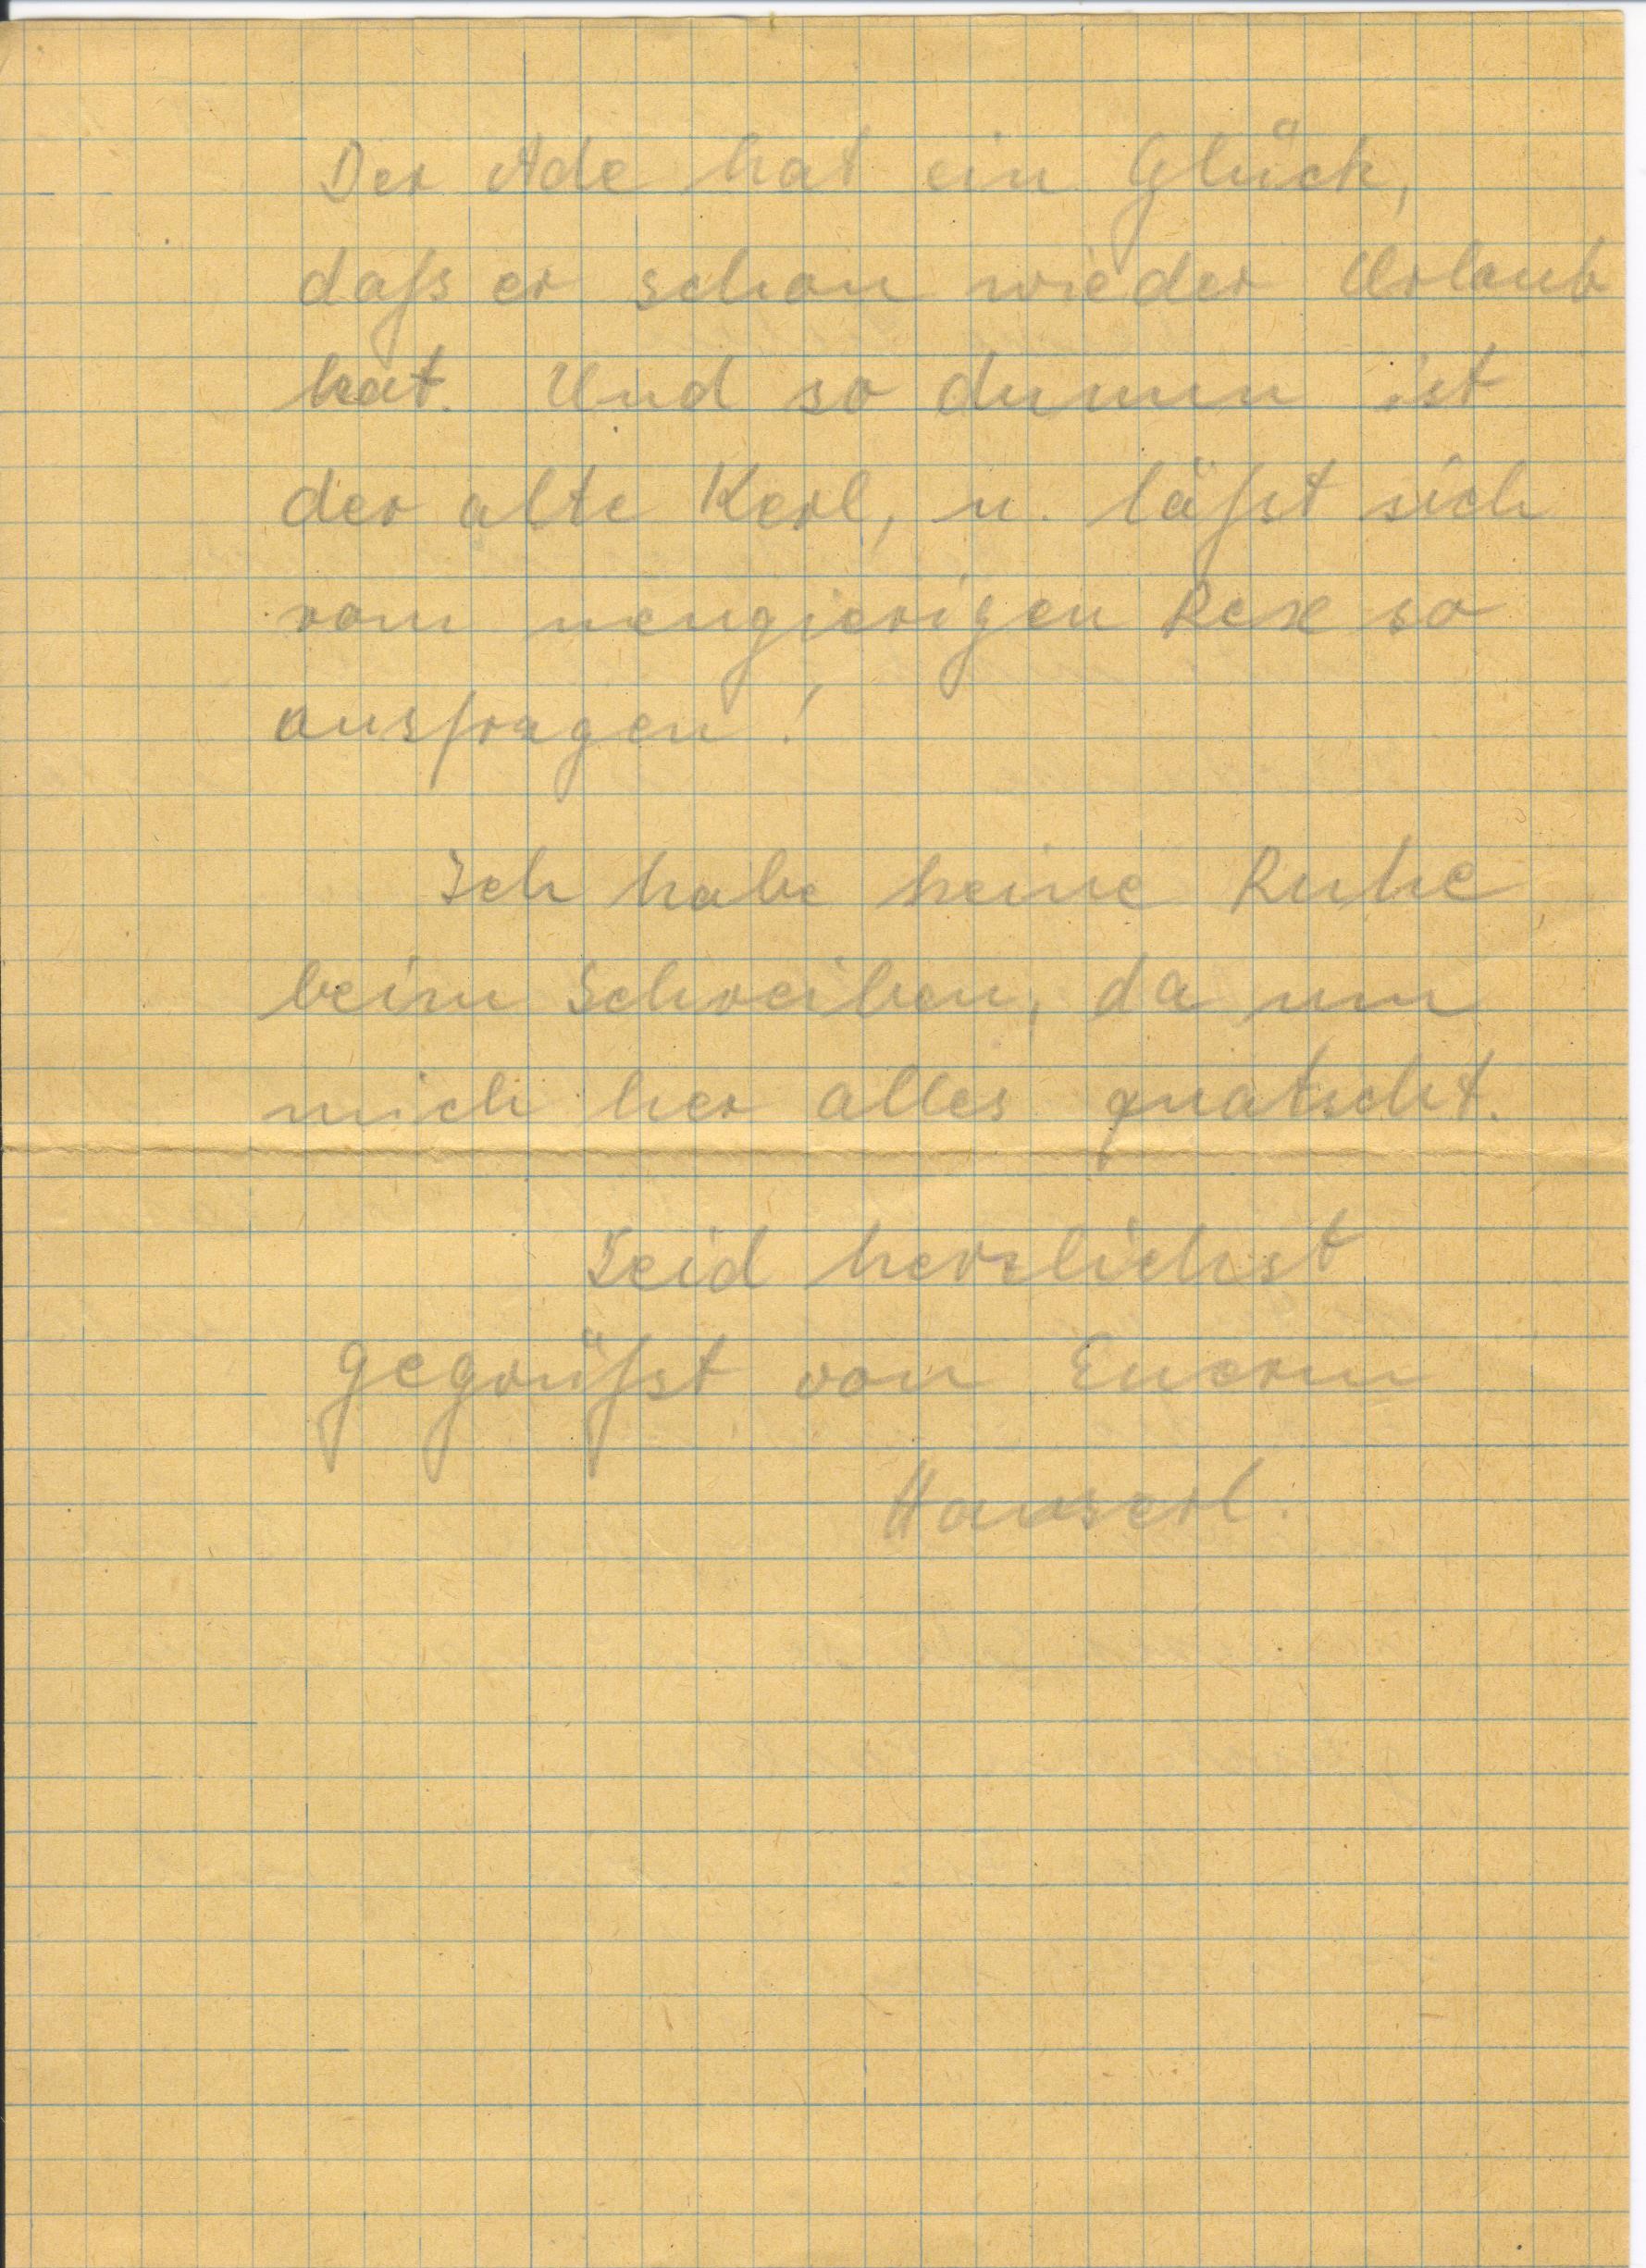 Der Ade hat ein Glück,
daß er schon wieder Urlaub
hat. Und so dumm ist
der alte Kerl, u. läßt sich
vom neugierigen Rex so
ausfragen!
Ich habe keine Ruhe
beim Schreiben, da um
mich her alles quatscht.
Seid herzlichst
gegrüßt von Euerm
Hanserl.